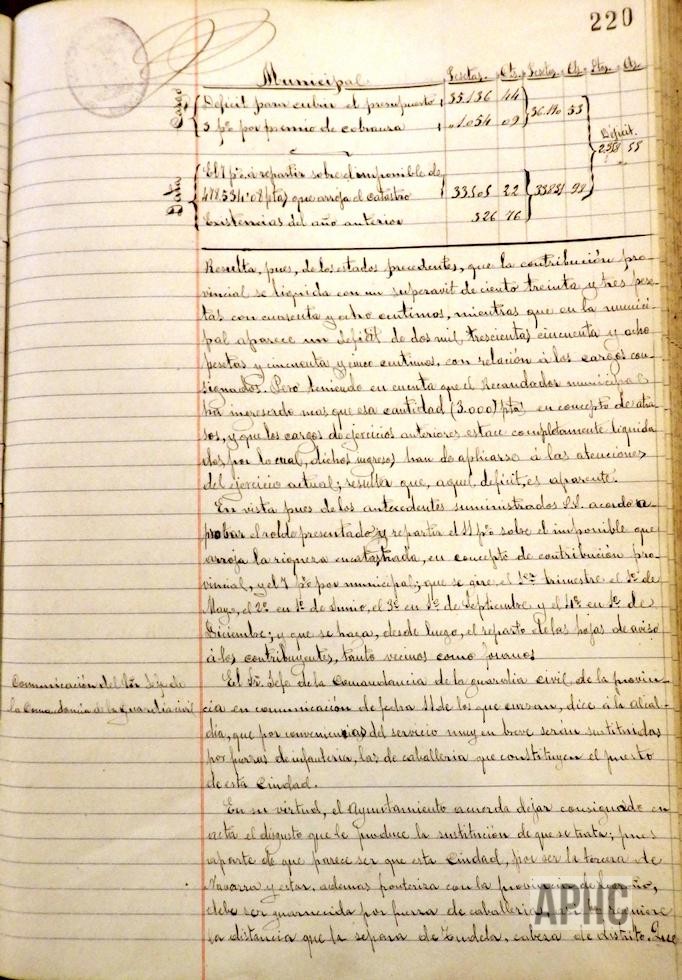 220
Municipal Pesetas. Cts. Pesetas. Cts. Ptas. Cts.
Cargo
Déficit para cubrir el presupuesto 35.136 44
3 p% por premio de cobranza 1.054 09 36.190 53
Déficit.
2.358 55
Data
El 7 p% a repartir sobre el imponible de
478.534'08 ptas) que arroja el catastro 33.505 22 33.831 98
Existencias del año anterior 326 76
Resulta, pues, de los estados precedentes, que la contribución pro-
vincial se liquida con un superavit de ciento treinta y tres pese-
tas con cuarenta y ocho centimos, mientras que en la munici-
pal aparece un deficit de dos mil trescientas cincuenta y ocho
pesetas y cincuenta y cinco centimos, con relación á los cargos con-
signados. Pero teniendo en cuenta que el Recaudador municipal
ha ingresado mas que esa cantidad (3.000 ptas) en concepto de atra-
sos, y que los cargos de ejercicios anteriores estan completamente liquida-
dos, por lo cual, dichos ingresos han de aplicarse á las atenciones
del ejercicio actual; resulta que, aquel deficit, es aparente.
En vista pues de los antecedentes suministrados S.S. acordó a-
probar el rolde presentado y repartir el 11 p% sobre el imponible que
arroja la riqueza encatastrada, en concepto de contribución pro-
vincial, y el 7 p% por municipal; que se gire, el 1er trimestre el 1º de
Mayo, el 2º en 1º de Junio, el 3º en 1º de Septiembre y el 4º en 1º de
Diciembre; y que se haga, desde luego, el reparto de las hojas de aviso
á los contribuyentes, tanto vecinos como foranos
Comunicación del Sr. Jefe de
la Comandancia de la Guardia civil
El Sr. Jefe de la Comandancia de la guardia civil de la provin-
cia en comunicación de fecha 11 de los que cursan, dice á la alcal-
día, que por conveniencias del servicio muy en breve serán sustituidas
por fuerzas de infanteria, las de caballeria que constituyen el puesto
de esta Ciudad.
En su virtud, el Ayuntamiento acuerda dejar consignado en
acta el disgusto que le produce la sustitución de que se trata; pues
aparte de que parece ser que esta Ciudad, por ser la tercera de
Navarra y estar, ademas fronteriza con la provincia de Logroño,
debe ser guarnecida por fuerza de caballeria requiere
la distancia que la separa de Tudela, cabeza de distrito. Que
APHC